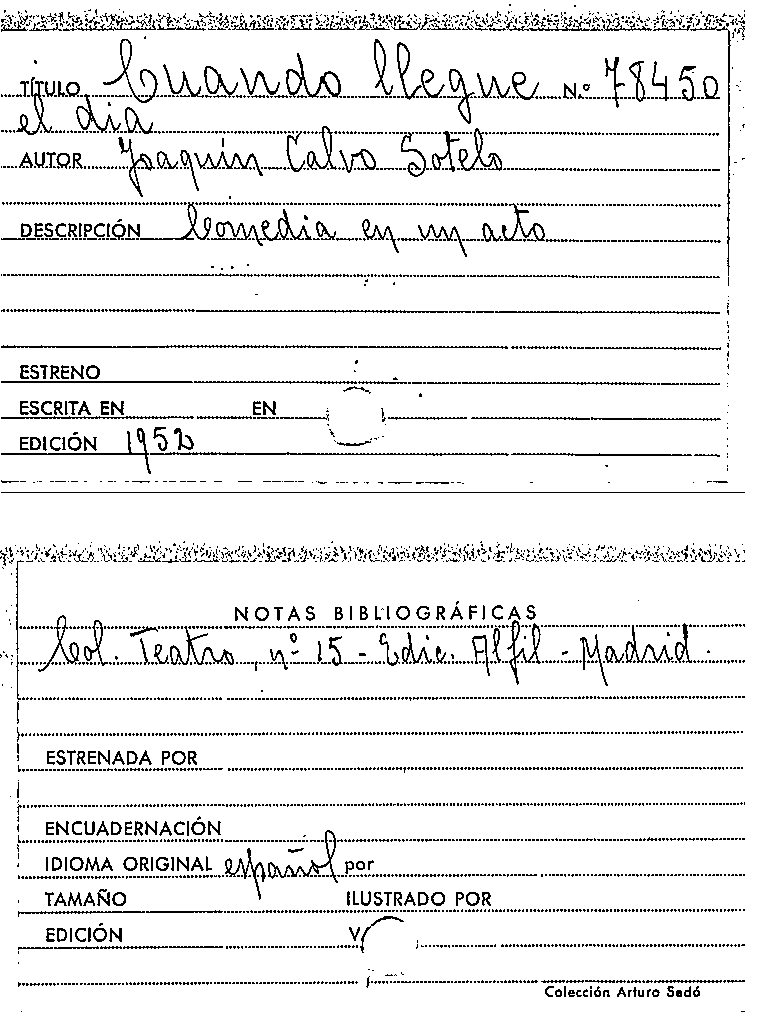 TÍTULO Cuando llegue N.º 78450
el dia
AUTOR Joaquín Calvo Sotelo
DESCRIPCIÓN Comedia en un acto
ESTRENO
ESCRITA EN EN
EDICIÓN 1952
NOTAS BIBLIOGRÁFICAS
Col. Teatro, nº 15 - Edic. Alfil - Madrid.
ESTRENADA POR
ENCUADERNACIÓN
IDIOMA ORIGINAL español por
TAMAÑO ILUSTRADO POR
EDICIÓN V
Colección Arturo Sedó